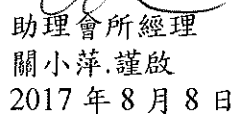 助理會所經理
關小萍.謹啟
2017 年 8 月 8 日